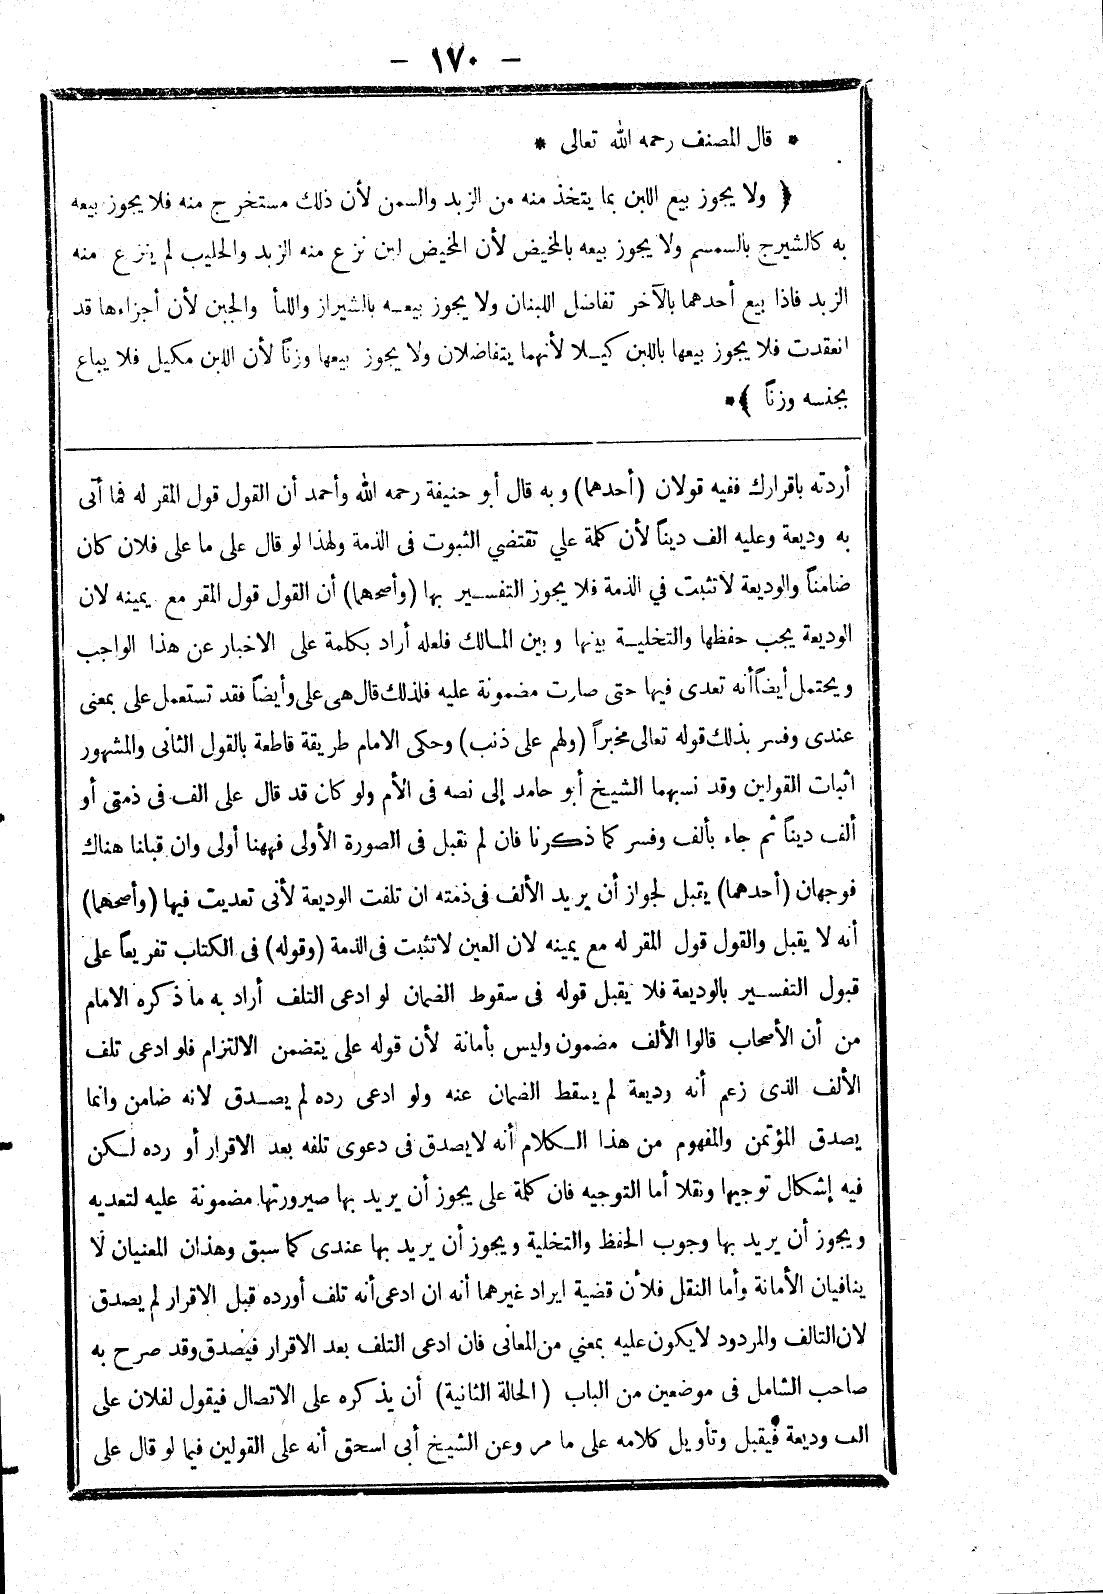 — ١٧٠ —
* قال المصنف رحمه الله تعالى *
﴿ ولا يجوز بيع اللبن بما يتخذ منه من الزبد والسمن لأن ذلك مستخرج منه فلا يجوز بيعه
به كالشيرج بالسمسم ولا يجوز بيعه بالمخيض لأن المخيض لبن نزع منه الزبد والحليب لم ينزع منه
الزبد فاذا بيع أحدهما بالآخر تفاضل اللبنان ولا يجوز بيعه بالشيراز واللبأ والجبن لأن أجزاءها قد
انعقدت فلا يجوز بيعها باللبن كيلا لأنهما يتفاضلان ولا يجوز بيعها وزناً لأن اللبن مكيل فلا يباع
بجنسه وزناً ﴾*
أردته باقرارك ففيه قولان (أحدهما) وبه قال أبو حنيفة رحمه الله وأحمد أن القول قول المقر له فما أتى
به وديعة وعليه الف ديناً لأن كلمة علي تقتضي الثبوت فى الذمة ولهذا لو قال على ما على فلان كان
ضامناً والوديعة لاتثبت في الذمة فلا يجوز التفسير بها (وأصحهما) أن القول قول المقر مع يمينه لان
الوديعة يجب حفظها والتخلية بينها وبين المالك فلعله أراد بكلمة على الاخبار عن هذا الواجب
ويحتمل أيضاً أنه تعدى فيها حتى صارت مضمونة عليه فلذلك قال هى على وأيضاً فقد تستعمل على بمعنى
عندى وفسر بذلك قوله تعالى مخبراً (ولهم على ذنب) وحكى الامام طريقة قاطعة بالقول الثانى والمشهور
اثبات القولين وقد نسبهما الشيخ أبو حامد إلى نصه فى الأم ولو كان قد قال على الف فى ذمتى أو
ألف ديناً ثم جاء بألف وفسر كما ذكرنا فان لم نقبل فى الصورة الأولى فههنا أولى وان قبلنا هناك
فوجهان (أحدهما) يقبل لجواز أن يريد الألف فى ذمته ان تلفت الوديعة لأنى تعديت فيها (وأصحهما)
أنه لا يقبل والقول قول المقر له مع يمينه لان العين لاتثبت فى الذمة (وقوله) فى الكتاب تفريعاً على
قبول التفسير بالوديعة فلا يقبل قوله فى سقوط الضمان لو ادعى التلف أراد به ما ذكره الامام
من أن الأصحاب قالوا الألف مضمون وليس بأمانة لأن قوله على يتضمن الالتزام فلو ادعى تلف
الألف الذى زعم أنه وديعة لم يسقط الضمان عنه ولو ادعى رده لم يصدق لانه ضامن وانما
يصدق المؤتمن والمفهوم من هذا الكلام أنه لايصدق فى دعوى تلفه بعد الاقرار أو رده لكن
فيه إشكال توجيها ونقلا أما التوجيه فان كلمة على يجوز أن يريد بها صيرورتها مضمونة عليه لتعديه
ويجوز أن يريد بها وجوب الحفظ والتخلية ويجوز أن يريد بها عندى كما سبق وهذان المعنيان لا
ينافيان الأمانة وأما النقل فلأن قضية ايراد غيرهما أنه ان ادعى أنه تلف أورده قبل الاقرار لم يصدق
لان التالف والمردود لايكون عليه بمعني من المعانى فان ادعى التلف بعد الاقرار فيصدق وقد صرح به
صاحب الشامل فى موضعين من الباب (الحالة الثانية) أن يذكره على الاتصال فيقول لفلان على
الف وديعة فيقبل وتأويل كلامه على ما مر وعن الشيخ أبى اسحق أنه على القولين فيما لو قال على